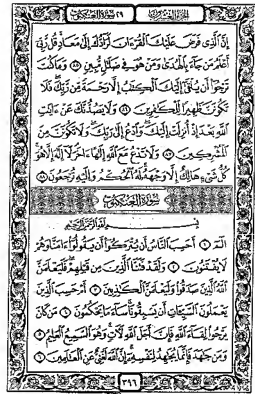 الجزء العشرون ٢٩ سورة العنكبوت
إن الذي فرض عليك القرءان لرادك إلى معاد قل ربي
أعلم من جاء بالهدى ومن هو في ضلال مبين ٨٥ وما كنت
ترجوا أن يلقى إليك الكتب إلا رحمة من ربك فلا
تكونن ظهيرا للكفرين ٨٦ ولا يصدنك عن ءايت
الله بعد إذ أنزلت إليك وادع إلى ربك ولا تكونن من
المشركين ٨٧ ولا تدع مع الله إلها ءاخر لا إله إلا هو
كل شيء هالك إلا وجهه له الحكم وإليه ترجعون ٨٨
سورة العنكبوت
بسم الله الرحمن الرحيم
الم ١ أحسب الناس أن يتركوا أن يقولوا ءامنا وهم
لا يفتنون ٢ ولقد فتنا الذين من قبلهم فليعلمن
الله الذين صدقوا وليعلمن الكذبين ٣ أم حسب الذين
يعملون السيئات أن يسبقونا ساء ما يحكمون ٤ من كان
يرجوا لقاء الله فإن أجل الله لأت وهو السميع العليم ٥
ومن جهد فإنما يجهد لنفسه إن الله لغني عن العلمين ٦
٣٩٦